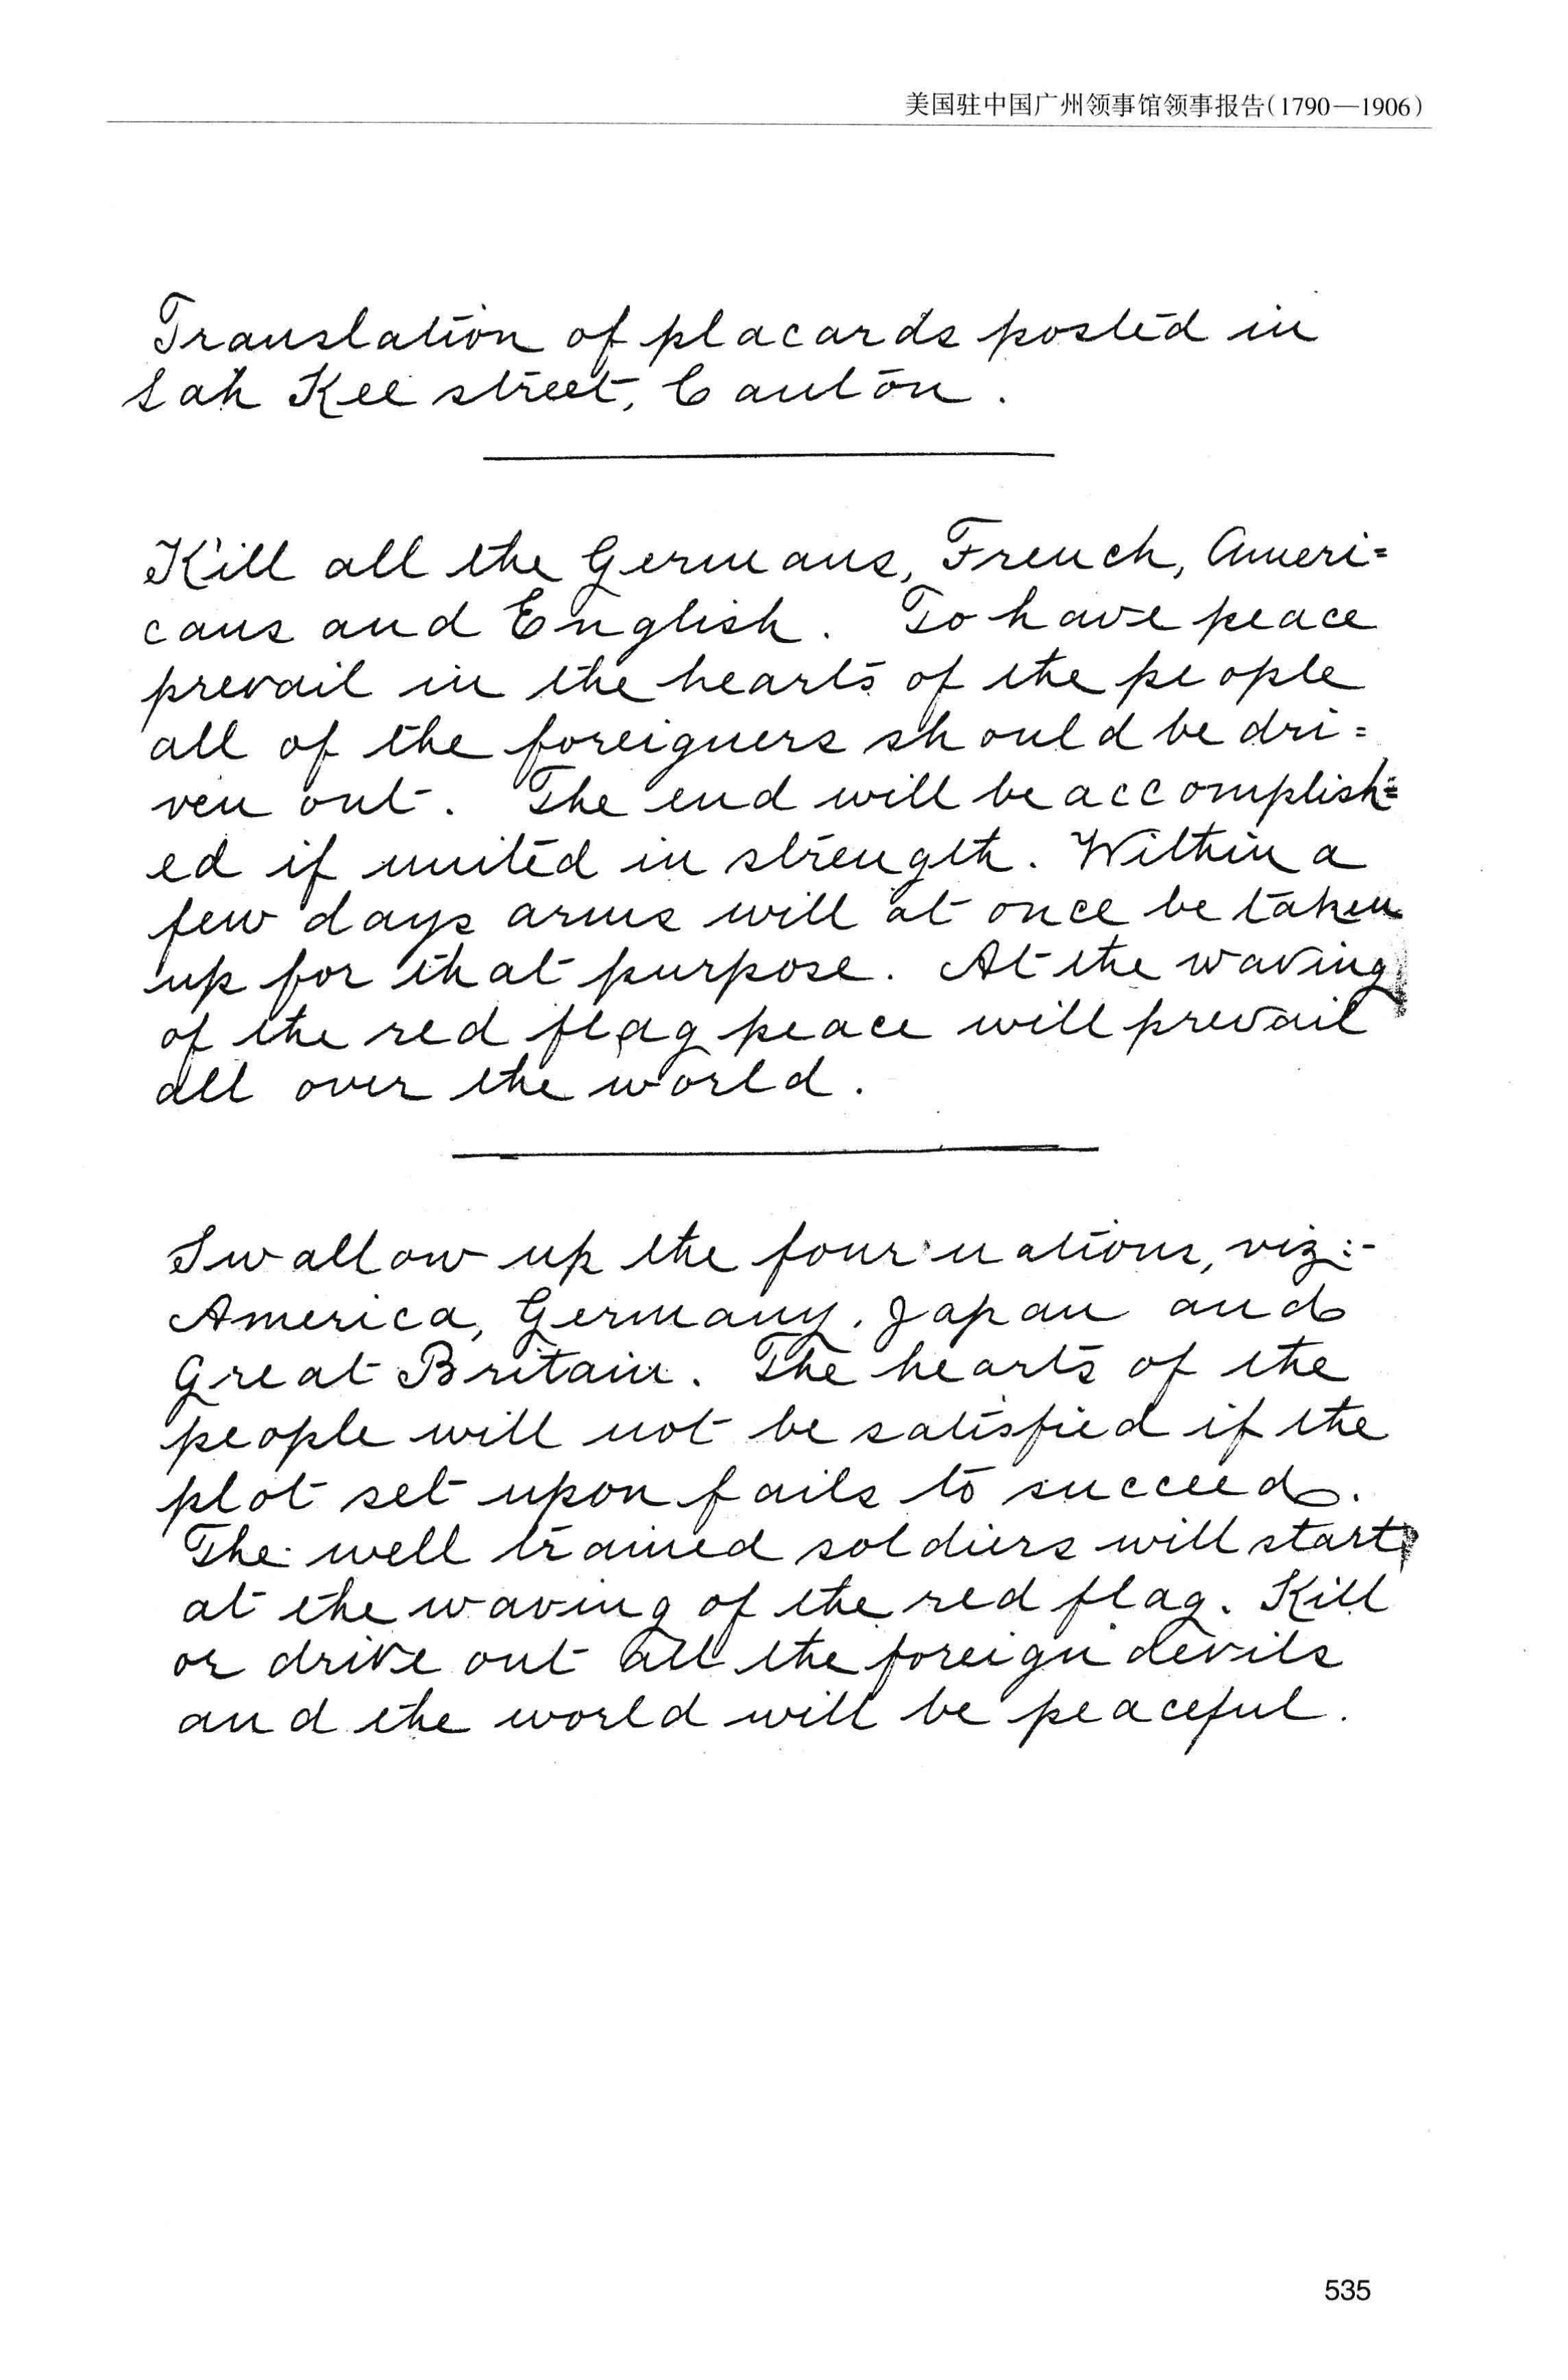 美国驻中国广州领事馆领事报告(1790—1906)
Translation of placards posted in
Sah Kee street, Canton.
Kill all the Germans, French, Ameri=
cans and English. To have peace
prevail in the hearts of the people
all of the foreigners should be dri=
ven out. The end will be accomplish=
ed if united in strength. Within a
few days arms will at once be taken
up for that purpose. At the waving
of the red flag peace will prevail
all over the world.
Swallow up the four nations, viz:-
America, Germany, Japan and
Great Britain. The hearts of the
people will not be satisfied if the
plot set upon fails to succeed.
The well trained soldiers will start
at the waving of the red flag. Kill
or drive out all the foreign devils
and the world will be peaceful.
535